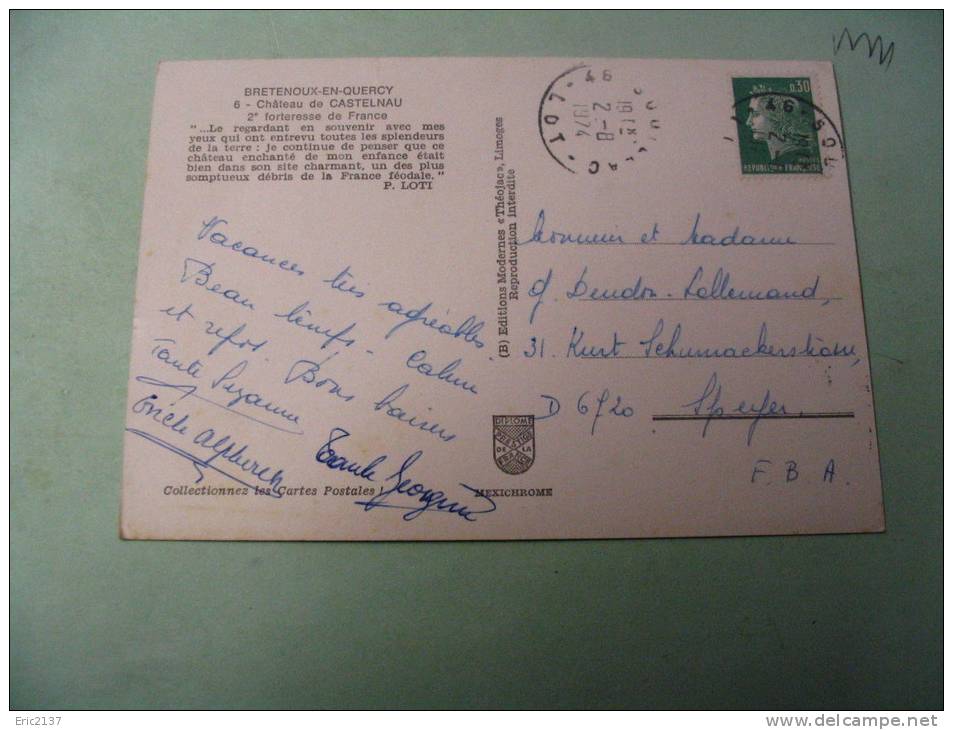 BRETENOUX-EN-QUERCY
6 - Château de CASTELNAU
2e forteresse de France
"...Le regardant en souvenir avec mes
yeux qui ont entrevu toutes les splendeurs
de la terre : je continue de penser que ce
château enchanté de mon enfance était
bien dans son site charmant, un des plus
somptueux débris de la France féodale."
P. LOTI
Vacances très agréables.
Beau temps - Calme
et repos. Bons baisers
Tante Suzanne
Oncle
Tante Georgina
Collectionnez les Cartes Postales !
(B) Editions Modernes «Théojac», Limoges
Reproduction interdite
DIPLOME
PRESTIGE
DE LA
FRANCE
MEXICHROME
46
SOUILLAC
19H
2-8
1974
LOT
0,30
REPUBLIQUE FRANÇAISE
46 SOU
Monsieur et Madame
J. Dendon-Lallemand,
31. Kurt Schumackerstrasse,
D 6720 Speyer.
F. B A.
Eric2137
www.delcampe.net